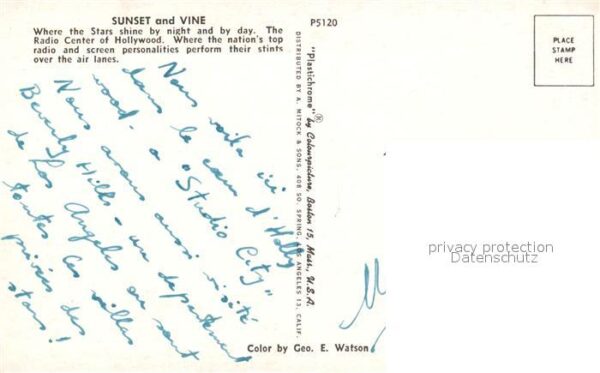 SUNSET and VINE
Where the Stars shine by night and by day. The
Radio Center of Hollywood. Where the nation's top
radio and screen personalities perform their stints
over the air lanes.
P5120
PLACE
STAMP
HERE
Nous voilà ici
dans le cœur d'Holly
wood - a "Studio City"
Nous avons aussi visité
Beverly Hills - un département
de Los Angeles où
toutes ces villes sont
privées des
stars!
"Plastichrome" ® by Colourpicture, Boston 15, Mass., U.S.A.
DISTRIBUTED BY A. MITOCK & SONS, 408 SO. SPRING, LOS ANGELES 13, CALIF.
Color by Geo. E. Watson,
privacy protection
Datenschutz